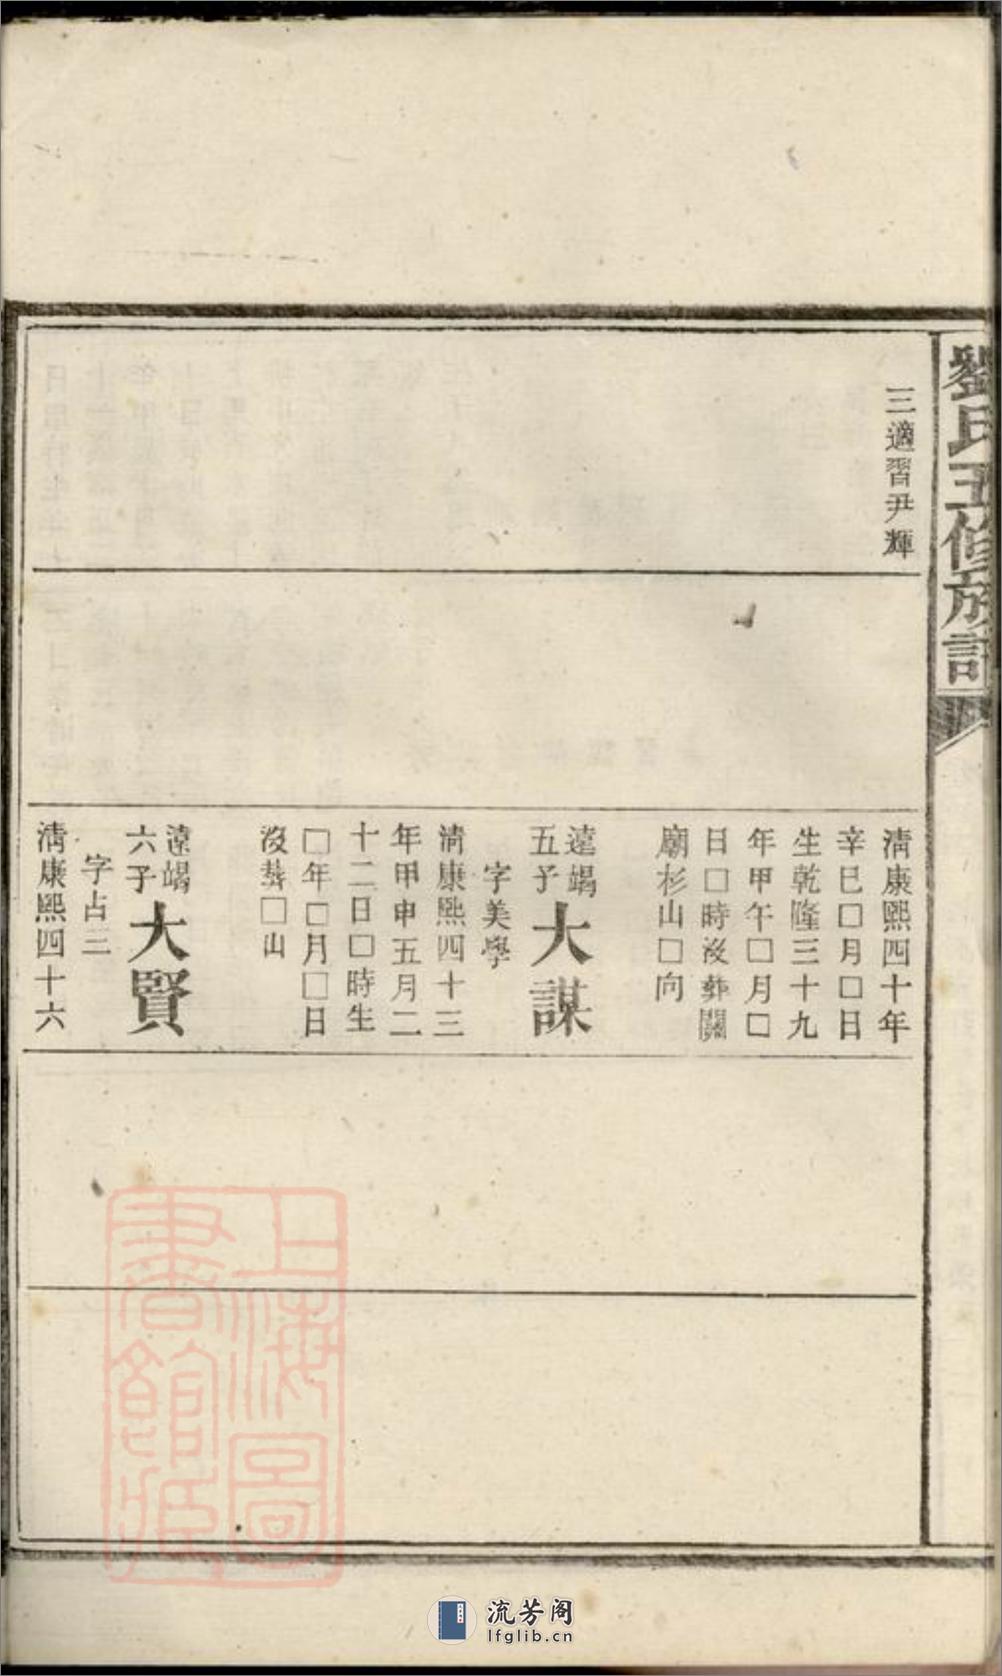 劉氏五修族譜
三適習尹輝
清康熙四十年
辛巳□月□日
生乾隆三十九
年甲午□月□
日□時沒葬關
廟杉山□向
遠竭
五子
大謀
字美學
清康熙四十三
年甲申五月二
十二日□時生
□年□月□日
沒葬□山
遠竭
六子
大賢
字占三
清康熙四十六
上海圖
書館藏
流芳阁
lfglib.cn